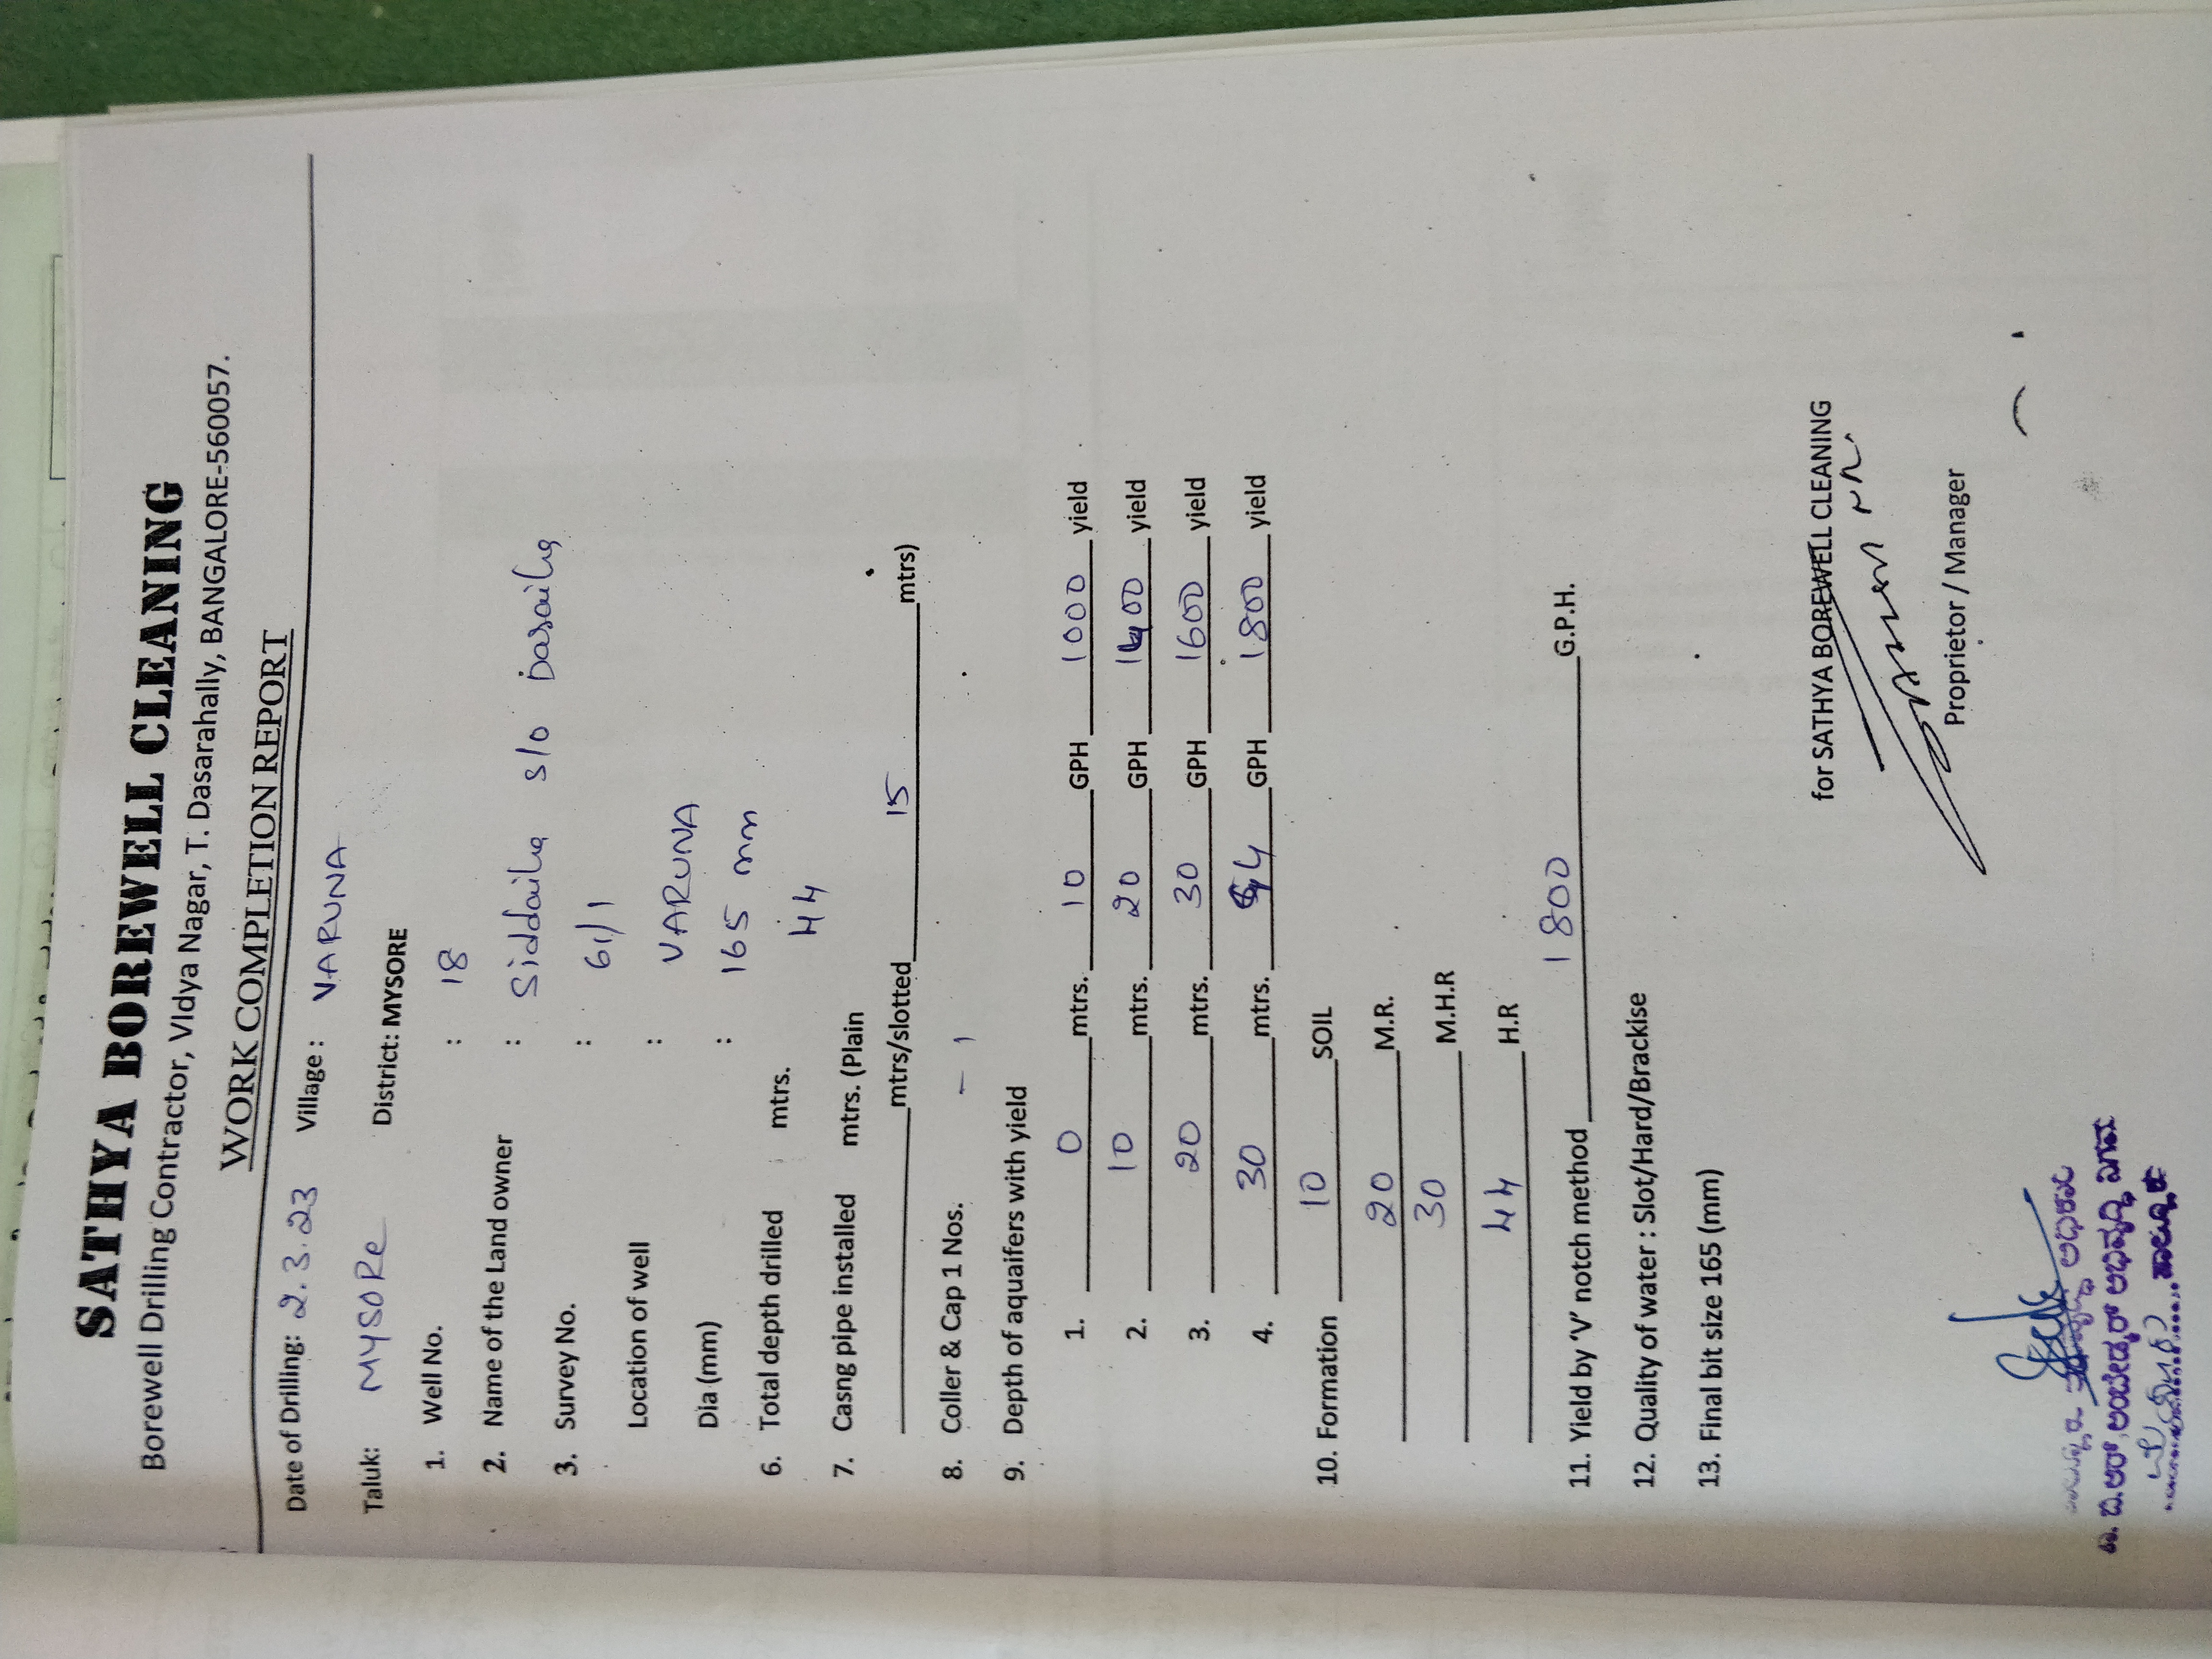 SATHYA BOREWELL CLEANING
Borewell Drilling Contractor, VIdya Nagar, T. Dasarahally, BANGALORE-560057.
WORK COMPLETION REPORT
Date of Drilling: 2.3.23 Village : VARUNA
Taluk: MYSORe District: MYSORE
1. Well No. : 18
2. Name of the Land owner : Siddaiha S/o Dasaiha
3. Survey No. : 61/1
Location of well : VARUNA
Dia (mm) : 165 mm
6. Total depth drilled mtrs. 44
7. Casng pipe installed mtrs. (Plain
mtrs/slotted 15 mtrs)
8. Coller & Cap 1 Nos. – 1
9. Depth of aquaifers with yield
1. 0 mtrs. 10 GPH 1000 yield
2. 10 mtrs. 20 GPH 1400 yield
3. 20 mtrs. 30 GPH 1600 yield
4. 30 mtrs. 44 GPH 1800 yield
10. Formation 10 SOIL
20 M.R.
30 M.H.R
44 H.R
11. Yield by 'V' notch method 1800 G.P.H.
12. Quality of water : Slot/Hard/Brackise
13. Final bit size 165 (mm)
for SATHYA BOREWELL CLEANING
Proprietor / Manager
ಡಾ. ಬಿ.ಆರ್. ಅಂಬೇಡ್ಕರ್ ಅಭಿವೃದ್ಧಿ ನಿಗಮ